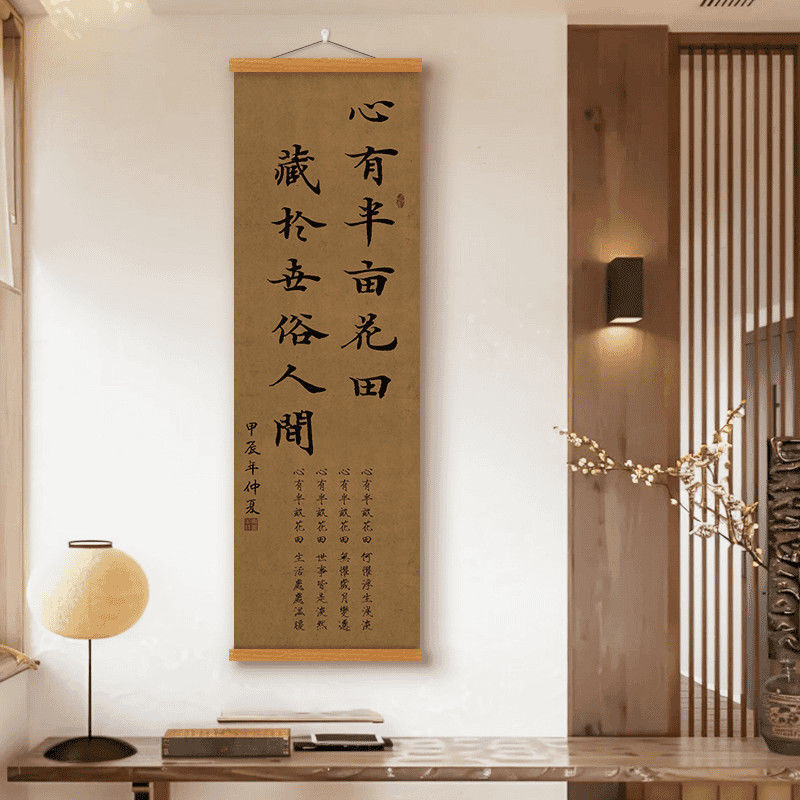 心有半亩花田
藏於世俗人間
心有半畝花田 何懼浮生淡淡
心有半畝花田 無懼歲月變遷
心有半畝花田 世事皆是淡然
心有半畝花田 生活處處溫暖
甲辰年仲夏